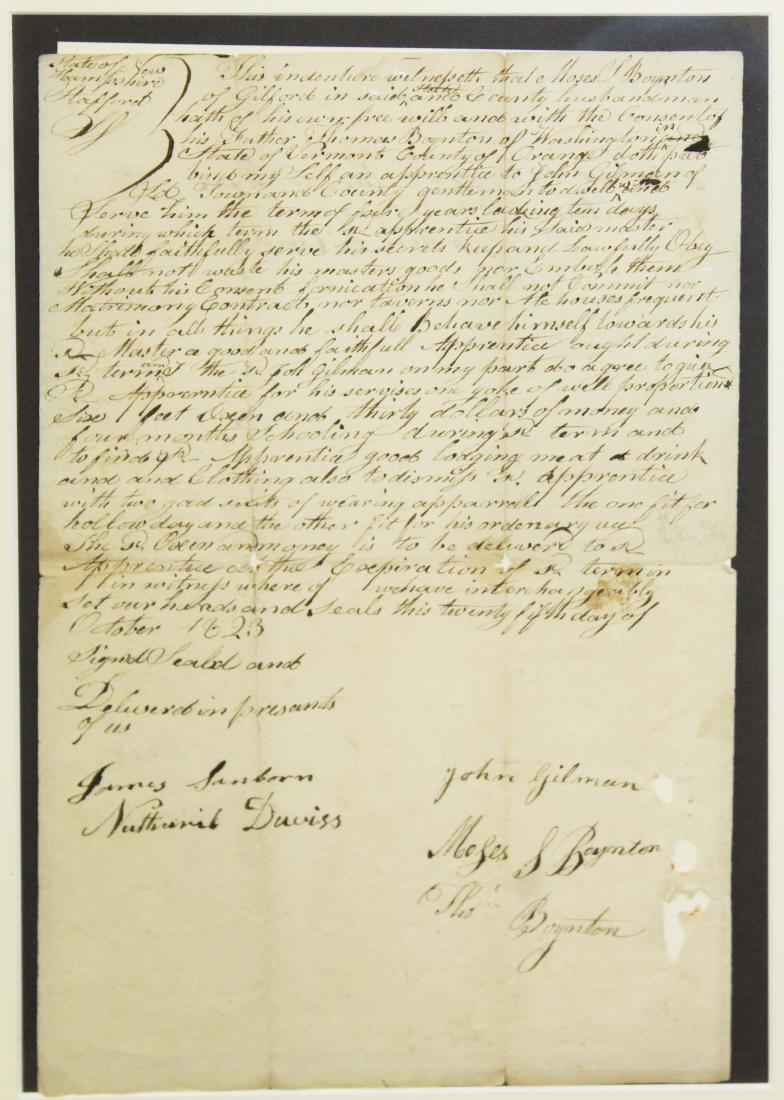 State of New
Hampshire
Strafford
SS
This indenture witnesseth that Moses S Boynton
of Gilford in said County husbandman
hath of his own free will and with the Consent of
his Father Thomas Boynton of Washington in
State of Vermont County of Orange doth put
bind my Self an apprentice to John Gilman of
Sd Town and County gentleman to dwell and
Serve him the term of four years lacking ten days
during which term the sd apprentice his said master
he Shall faithfully serve his secrets keep and Lawfully Obey
Shall not waste his masters goods nor Embezle them
Without his Consent fornication he Shall not Commit nor
Matrimony Contract, nor taverns nor Ale houses frequent
but in all things he shall Behave himself towards his
sd Master a good and faithfull Apprentice ought during
sd term and the sd John Gilman on my part do agree to give
Sd Apprerntice for his servises one yoke of well proportiond
Six feet Oxen and thirty dollars of money and
four months Schooling during sd term and
to find sd Apprentice good lodging meat & drink
and and Clothing also to dismiss sd apprentice
with two good suits of wearing apparrel the one fit for
hollowday and the other fit for his ordenary use
The sd Oxen and money is to be deliverd to sd
Apprentice at the Expiration of sd term in
in witness where of we have interchangeably
set our hands and seals this twenty fifth day of
October 1823
Signd Seald and
Deliverd in presants
of us
James Sanborn
John Gilman
Nathaniel Daviss
Moses S Boynton
Thos Boynton